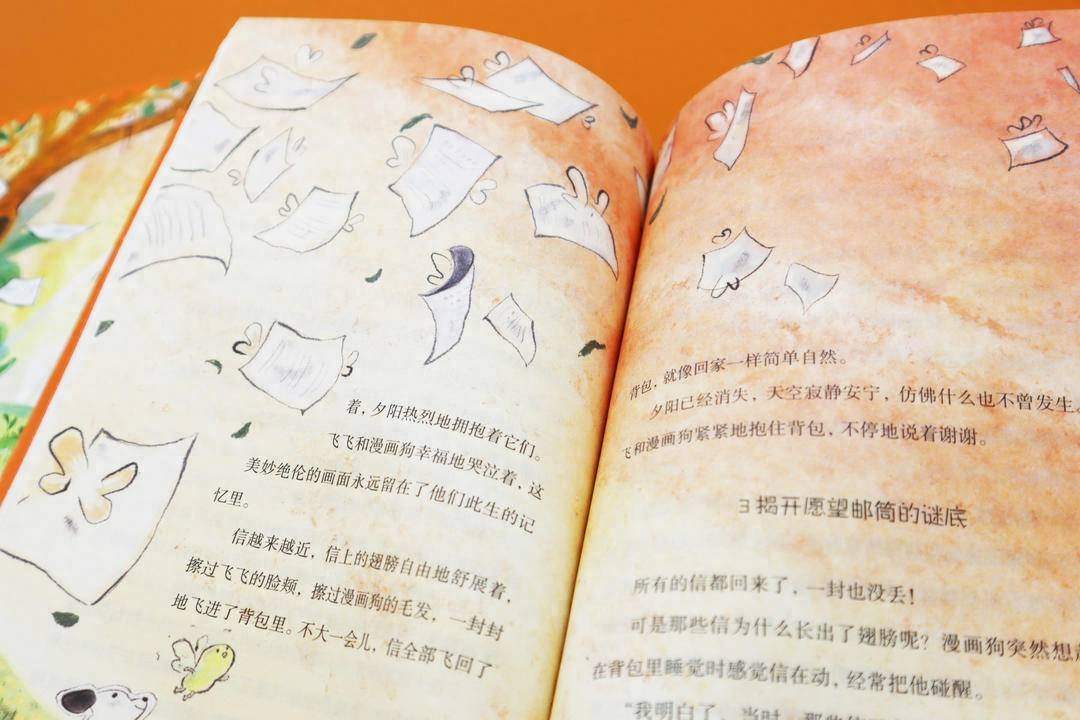 着，夕阳热烈地拥抱着它们。
飞飞和漫画狗幸福地哭泣着，这
美妙绝伦的画面永远留在了他们此生的记
忆里。
信越来越近，信上的翅膀自由地舒展着，
擦过飞飞的脸颊，擦过漫画狗的毛发，一封封
地飞进了背包里。不大一会儿，信全部飞回了
背包，就像回家一样简单自然。
夕阳已经消失，天空寂静安宁，仿佛什么也不曾发生。
飞和漫画狗紧紧地抱住背包，不停地说着谢谢。
3 揭开愿望邮筒的谜底
所有的信都回来了，一封也没丢！
可是那些信为什么长出了翅膀呢？漫画狗突然想起
在背包里睡觉时感觉信在动，经常把他碰醒。
“我明白了，当时，那些信